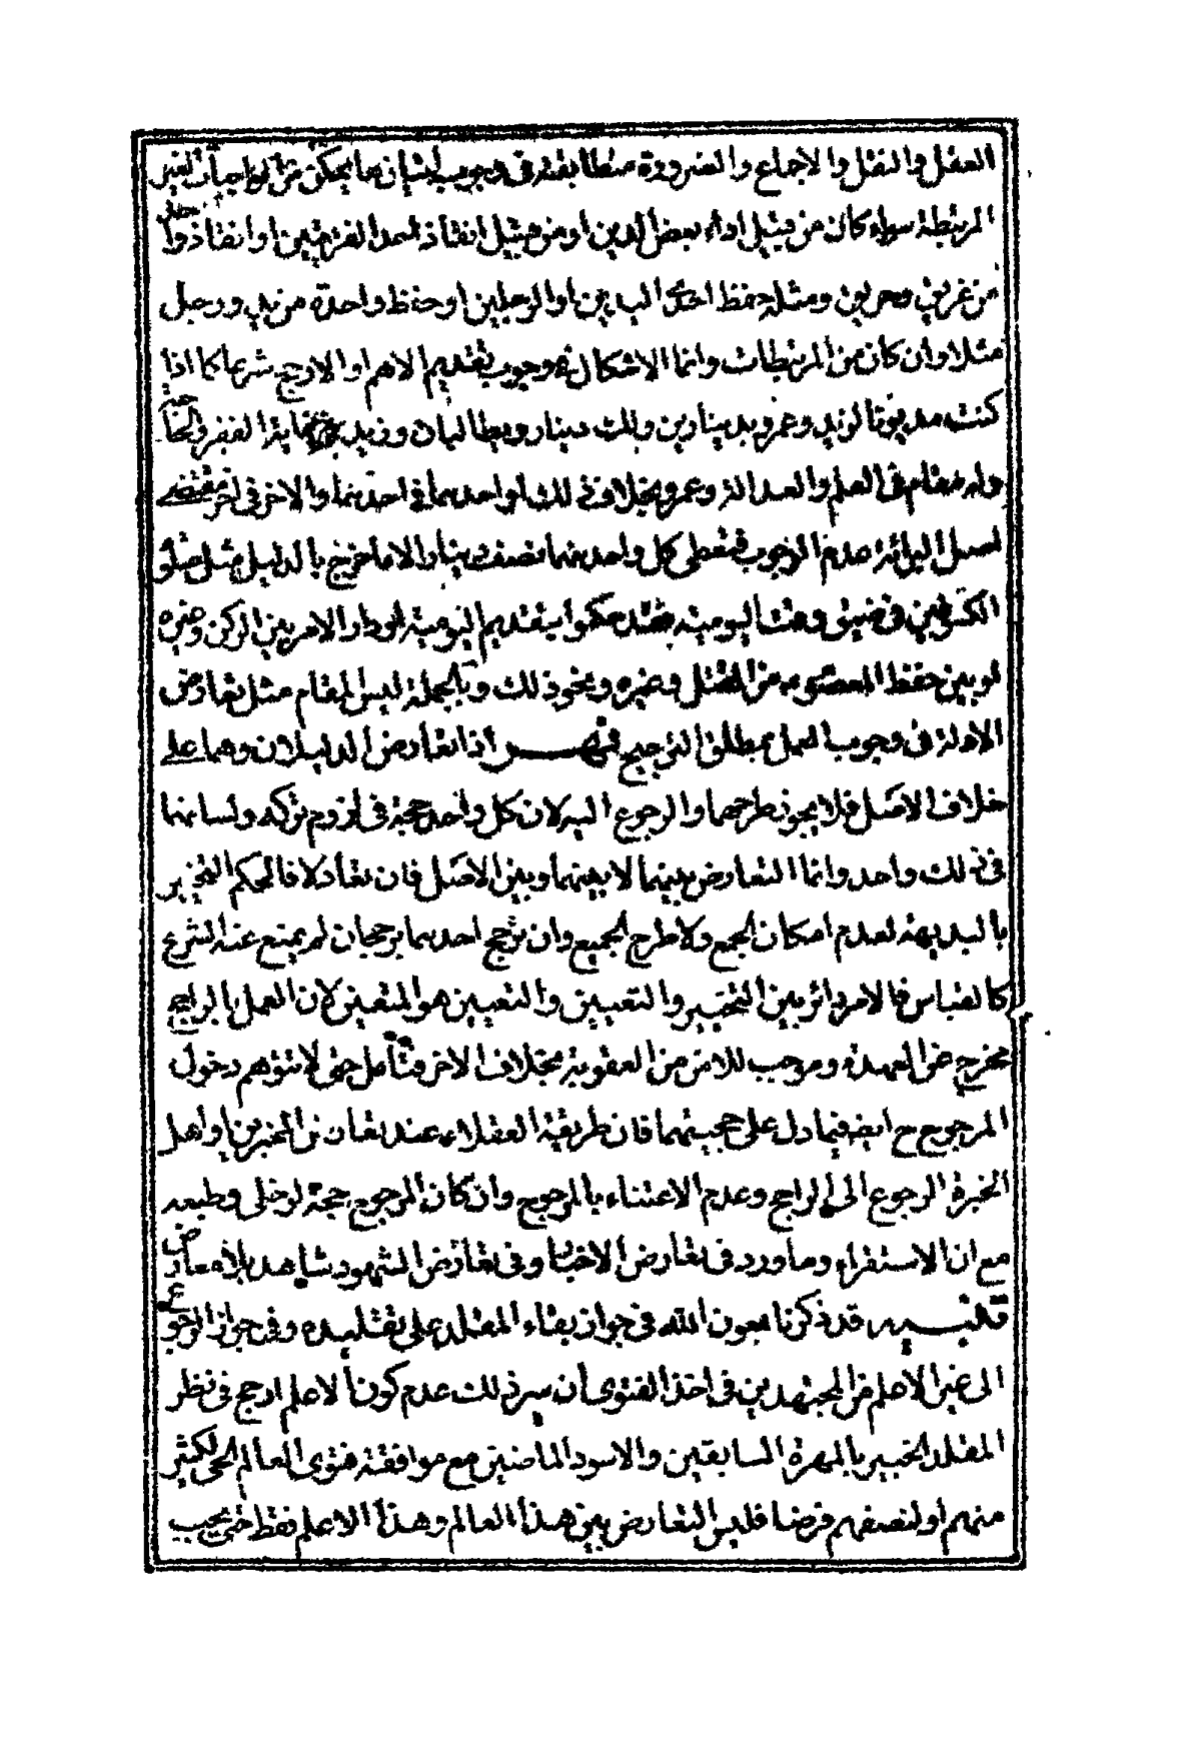 العقل والنقل والاجماع والضرورة متطابقة فى وجوب اتيان ما يمكن من الواجبات الغير
المرتبطة سواء كان من قبيل اداء بعض الدين او من قبيل انقاذ احد الغريقين او انقاذ واحد
من غريق وحريق ومثله حفظ احدى اليدين او الرجلين او حفظ واحدة من يد ورجل
مثلا وان كان من المرتبطات وانما الاشكال فى وجوب تقديم الاهم او الارجح شرعا كما اذا
كنت مديونا لزيد وعمرو بدينارين ولك دينار ويطالبان وزيد فى غاية الفقر والحاجة
وله مقام فى العلم والعدالة وعمرو بخلاف ذلك او احدهما فى احدهما والاخر فى اخر مقتضى
اصل البرائة عدم الوجوب فيعطى كل واحد منهما نصف دينار الا ما خرج بالدليل مثل صلوة
الكسوفين فى ضيق وقت اليومية فقد حكموا بتقديم اليومية لو دار الامر بين الركن وغيره
او بين حفظ المعصوم من القتل وغيره ونحو ذلك وبالجملة ليس المقام مثل تعارض
الادلة فى وجوب العمل بمطلق الترجيح فهـــم اذا تعارض الدليلان وهما على
خلاف الاصل فلا يجوز طرحهما والرجوع اليه لان كل واحد حجة فى لزوم تركه ولسانهما
فى ذلك واحد وانما التعارض بينهما لا بينهما وبين الاصل فان تعادلا فالحكم التخيير
بالبديهة لعدم امكان الجمع ولا طرح الجميع وان ترجح احدهما برجحان لم يمنع عنه الشرع
كالقياس فالامر دائر بين التخيير والتعيين والتعيين هو المتعين لان العمل بالراجح
مخرج عن العهدة وموجب للامن من العقوبة بخلاف الاخر فتأمل حتى لا تتوهم دخول
المرجوح ح ايضا فيما دل على حجيتهما فان طريقة العقلاء عند تعارض المخبرين او اهل
الخبرة الرجوع الى الراجح وعدم الاعتناء بالمرجوح وان كان المرجوح حجة لو خلى وطبعه
مع ان الاستقراء وما ورد فى تعارض الاخبار وفى تعارض الشهود شاهد بلا معارض
تنبيـــه قد ذكرنا بعون الله فى جواز بقاء المقلد على تقليده وفى جواز الرجوع
الى غير الاعلم من المجتهدين فى اخذ الفتوى ان سر ذلك عدم كون الاعلم ارجح فى نظر
المقلد الخبير بالمهرة السابقين والاسود الماضين مع موافقة فتوى العالم الحى لكثير
منهم او لنصفهم فرضا فليس التعارض بين هذا العالم وهذا الاعلم فقط حتى يجب